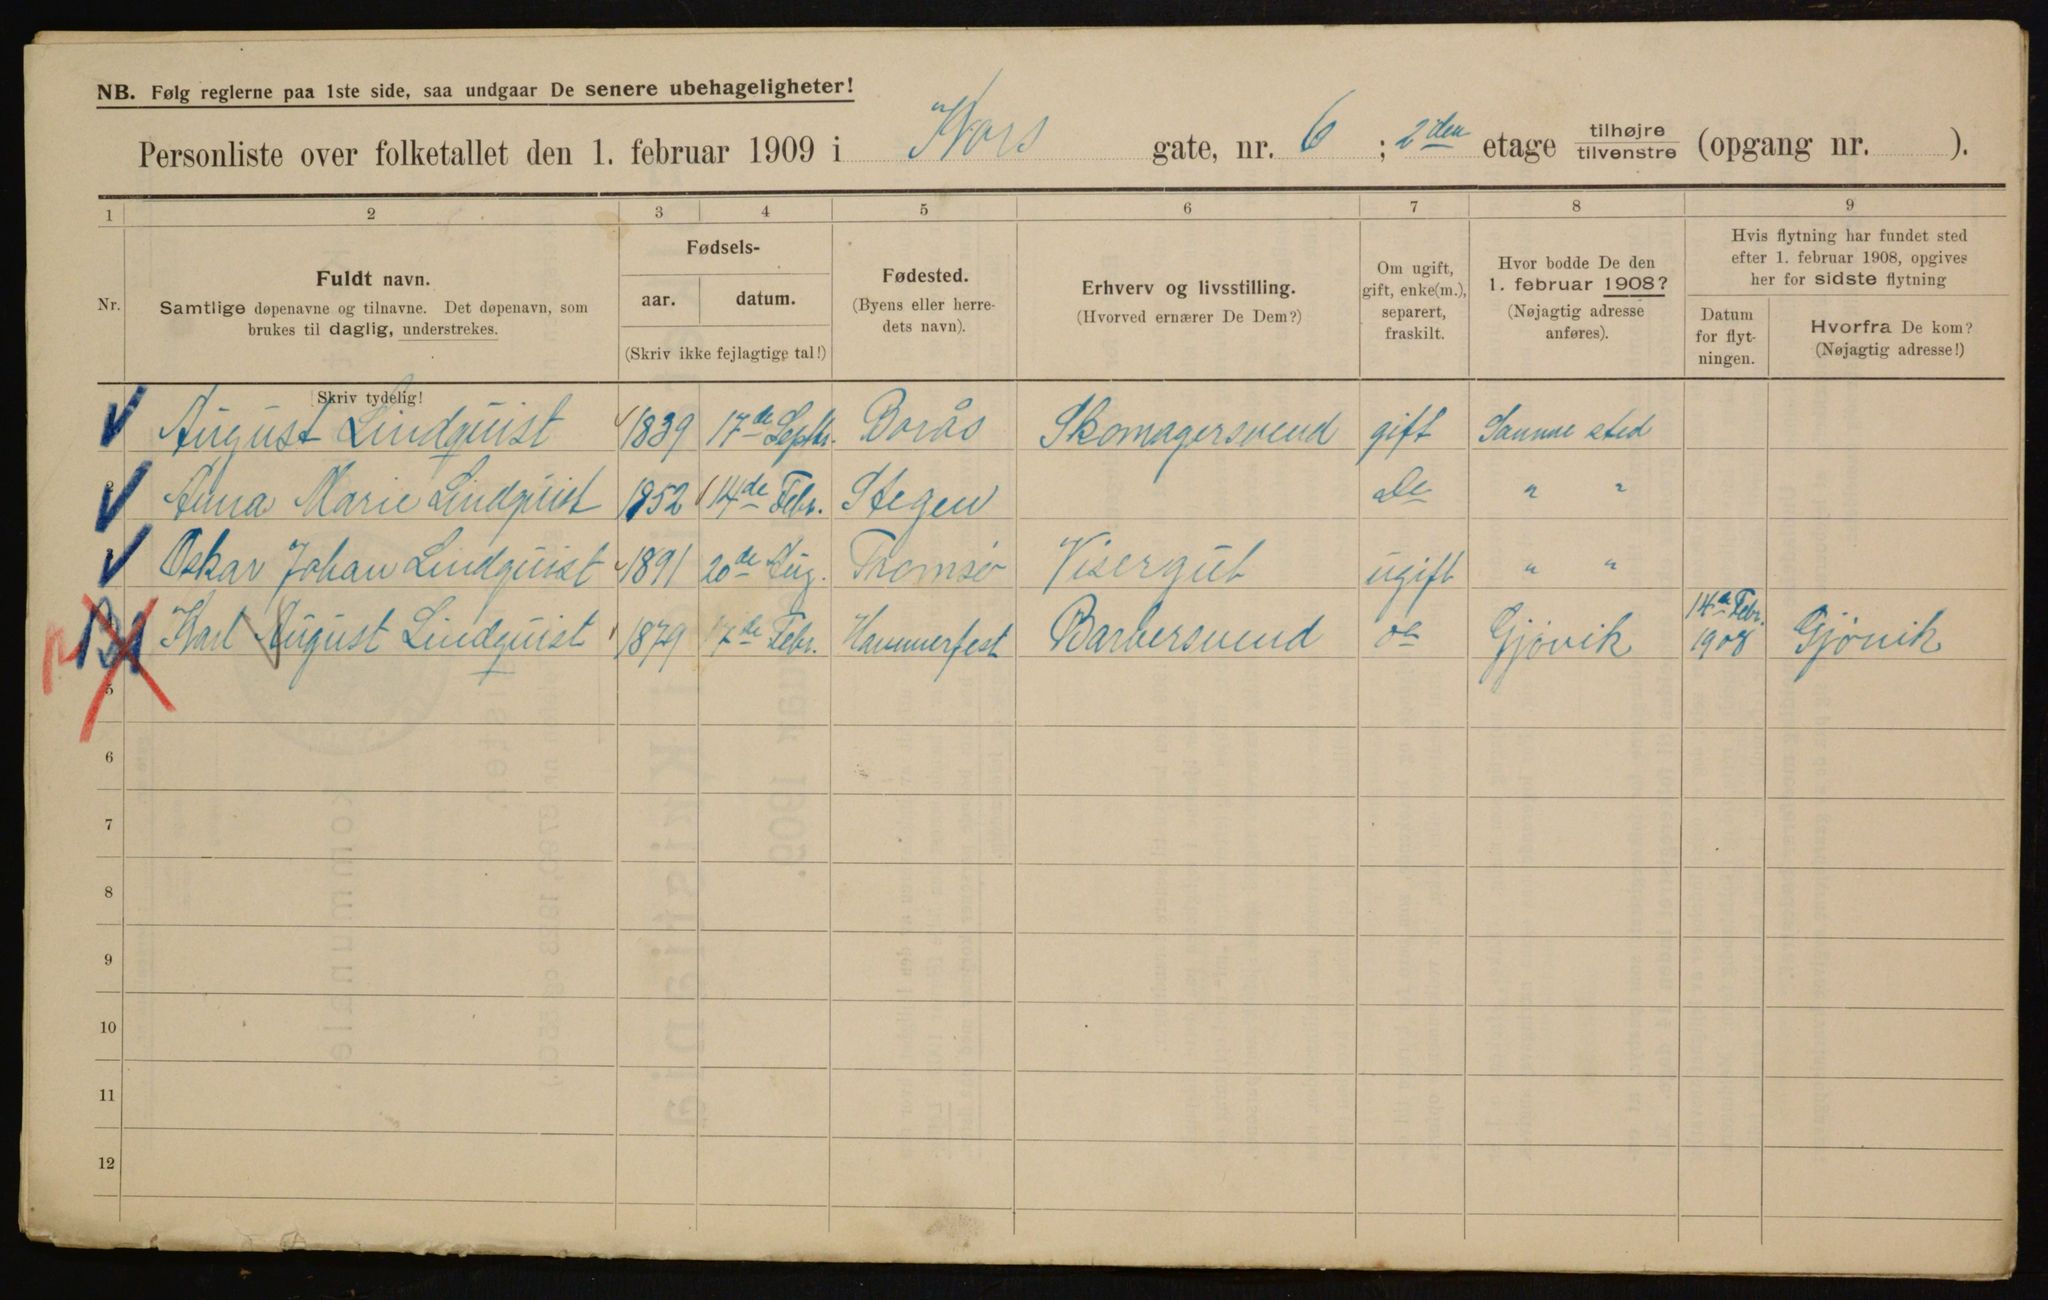 NB. Følg reglerne paa 1ste side, saa undgaar De senere ubehageligheter!
Personliste over folketallet den 1. februar 1909 i Kors gate, nr. 6 ; 2den etage tilhøjre tilvenstre (opgang nr. ).
1 2 3 4 5 6 7 8 9
Nr.
Fuldt navn.
Samtlige døpenavne og tilnavne. Det døpenavn, som
brukes til daglig, understrekes.
Skriv tydelig!
Fødsels-
aar. datum.
(Skriv ikke fejlagtige tal!)
Fødested.
(Byens eller herre-
dets navn).
Erhverv og livsstilling.
(Hvorved ernærer De Dem?)
Om ugift,
gift, enke(m.),
separert,
fraskilt.
Hvor bodde De den
1. februar 1908?
(Nøjagtig adresse
anføres).
Hvis flytning har fundet sted
efter 1. februar 1908, opgives
her for sidste flytning
Datum
for flyt-
ningen.
Hvorfra De kom?
(Nøjagtig adresse!)
August Lindquist 1839 17de Septbr. Borås Skomagersvend gift Samme sted
Anna Marie Lindquist 1852 14de Febr. Stegen Do " "
Oskar Johan Lindquist 1891 20de Aug. Tromsø Visergut ugift " "
Karl August Lindquist 1879 17de Febr. Hammerfest Barbersvend do Gjövik 14de Febr. 1908 Gjövik
5
6
7
8
9
10
11
12